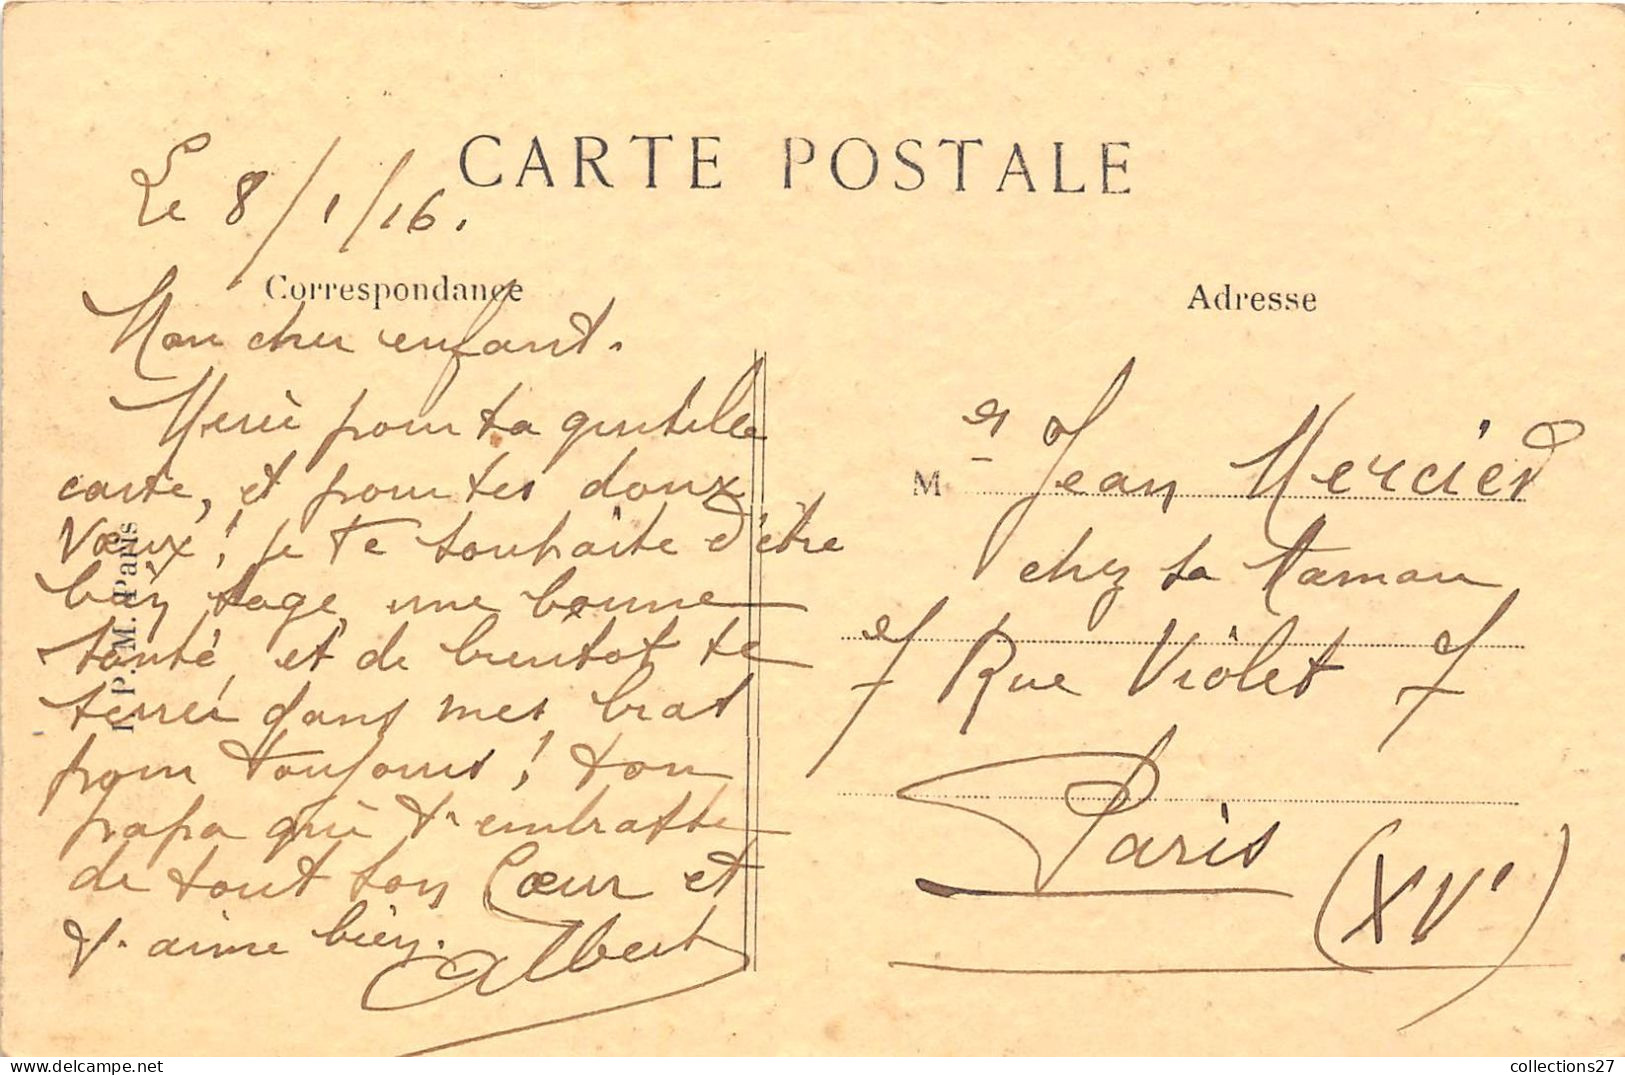 CARTE POSTALE
Le 8/1/16.
Correspondance
Mon cher enfant.
Merci pour ta gentille
carte, et pour tes doux
Vœux! je te souhaite d'être
bien sage, une bonne
santé, et de bientôt te
serrer dans mes bras
pour toujours! ton
papa qui t'embrasse
de tout son Cœur et
t'aime bien. Albert
I. P. M. Paris
Adresse
M er Jean Mercier
chez sa Maman
7 Rue Violet 7
Paris
(XVe)
collections27